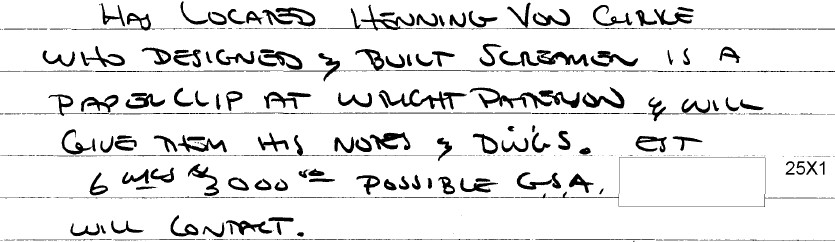 HAS LOCATED HENNING VON GIRKE
WHO DESIGNED & BUILT SCREAMER IS A
PAPERCLIP AT WRIGHT PATERSON & WILL
GIVE THEM HIS NOTES & DWGS. EST
6 WKS $3000 00 POSSIBLE G.S.A. 25X1
WILL CONTACT.